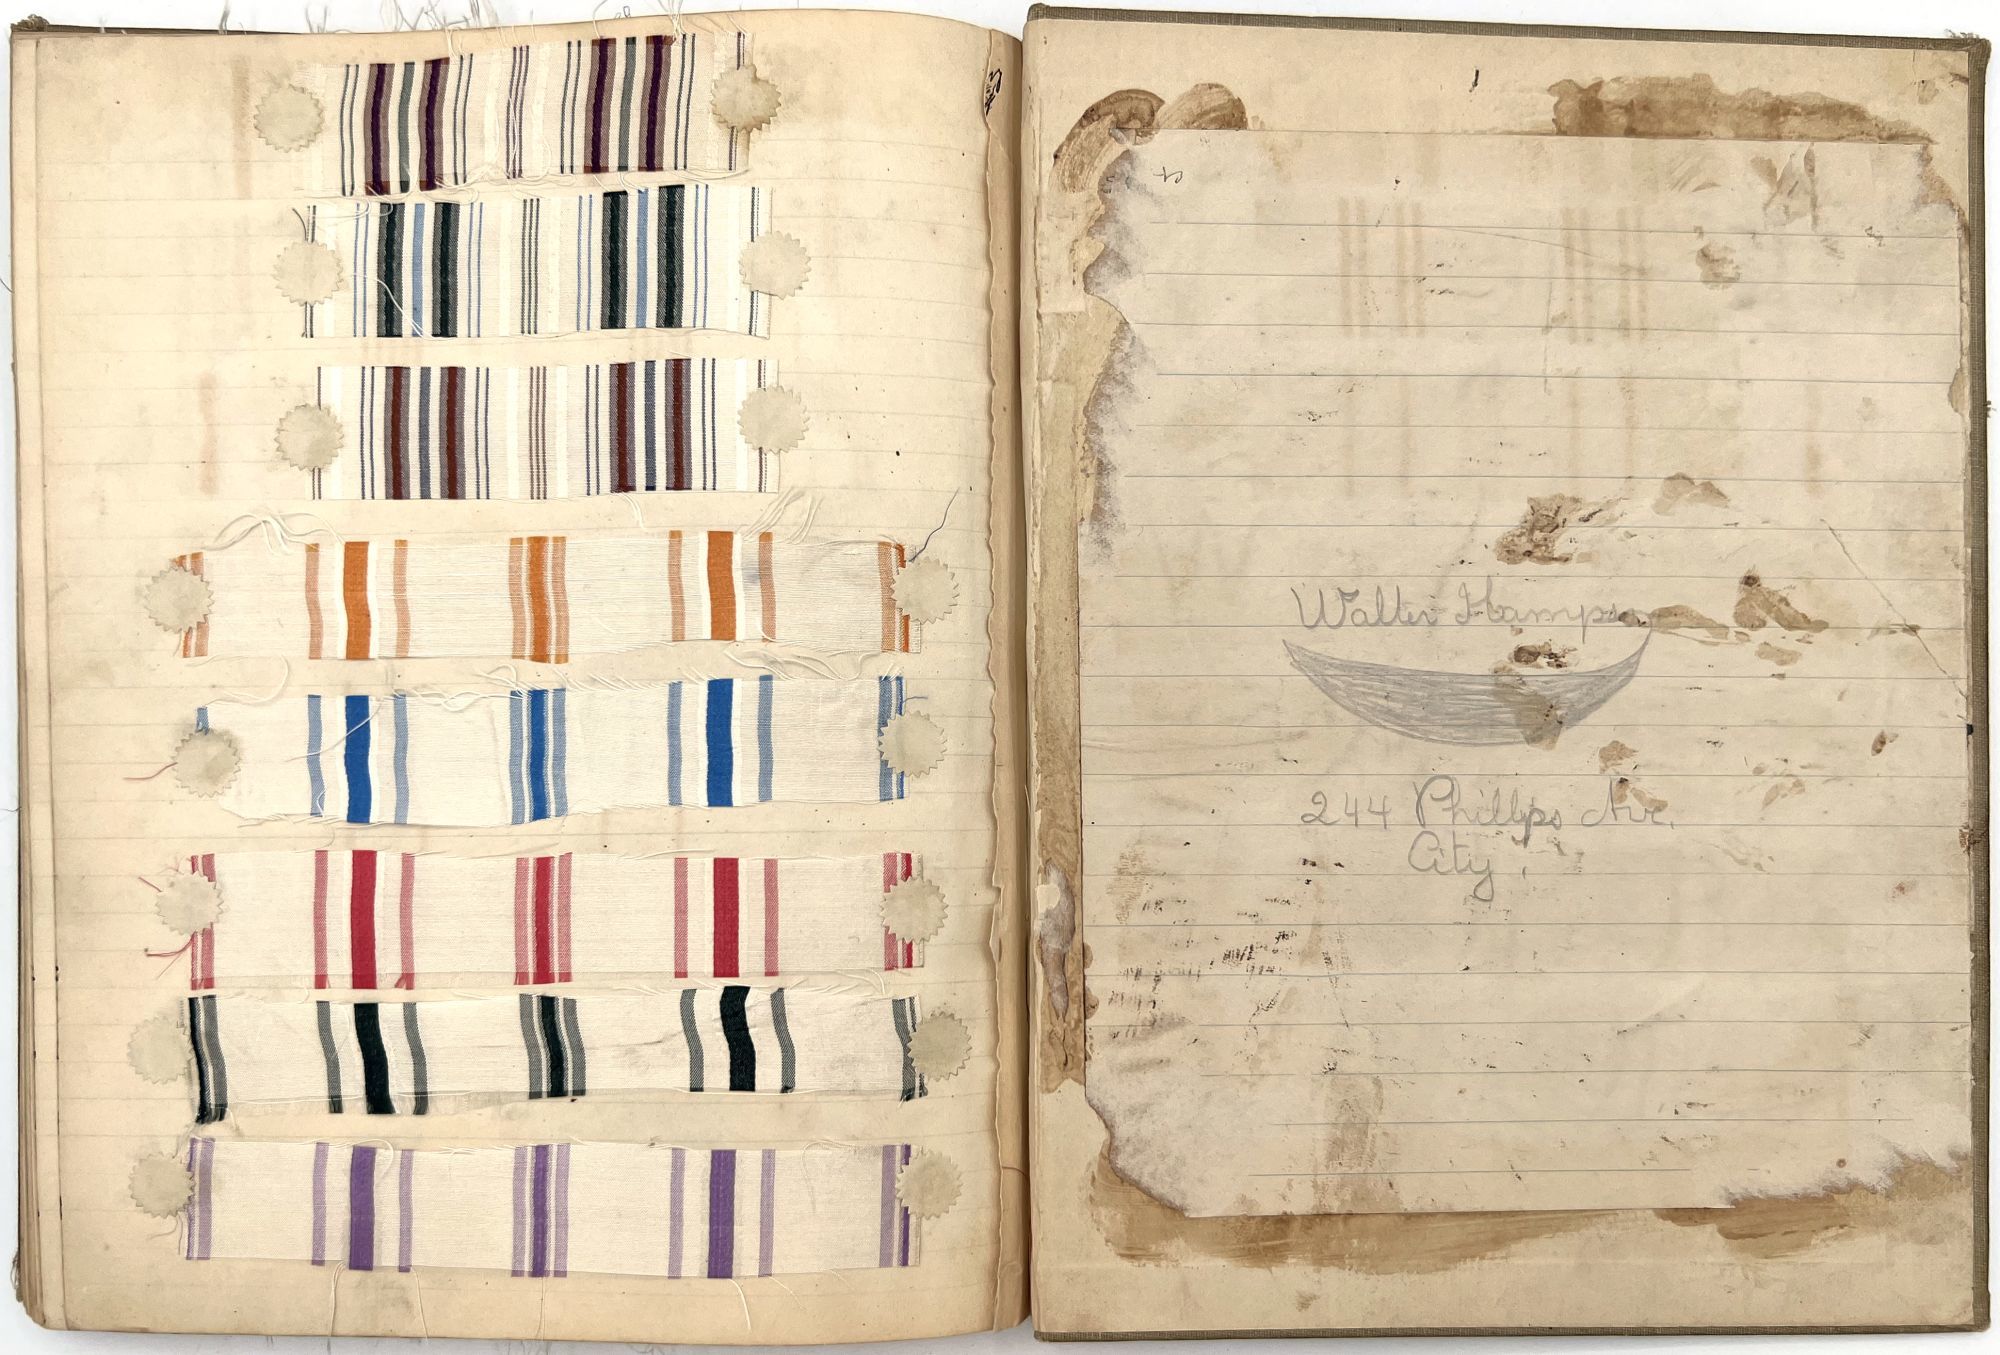 Walter Hampson
244 Phillips Ave.
City.